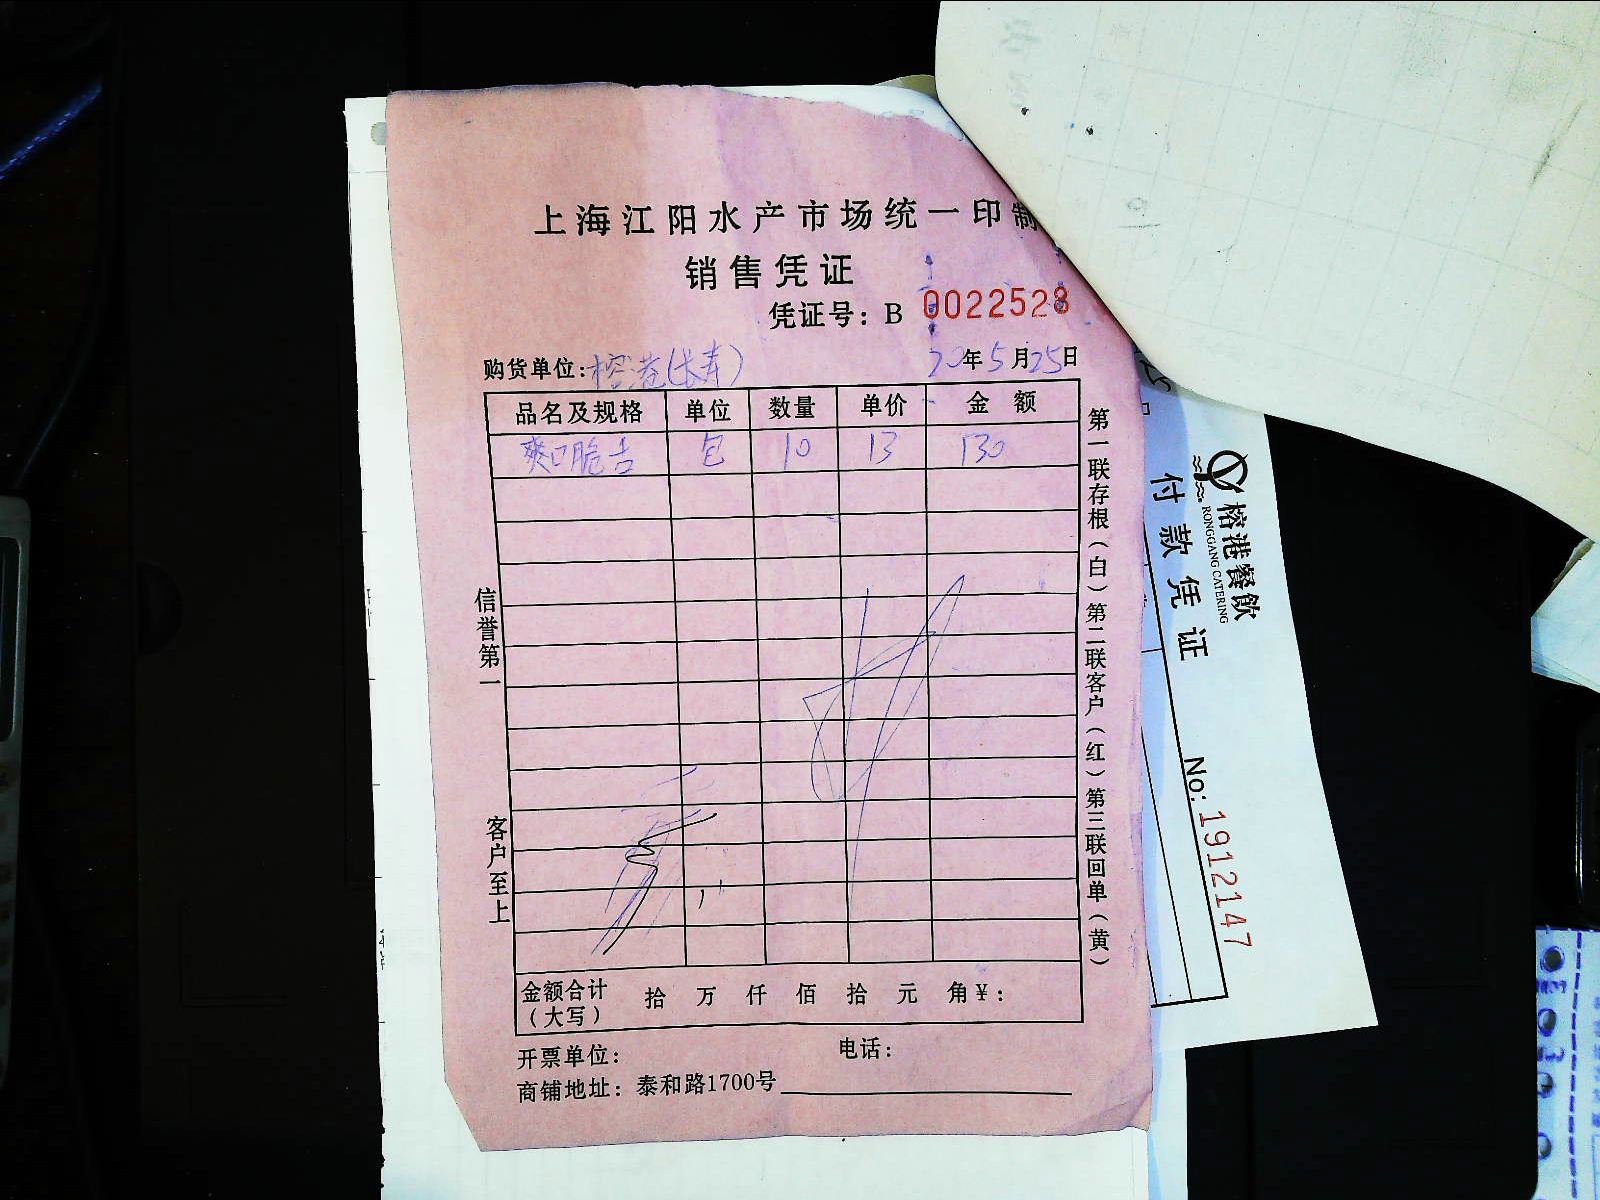 上海江阳水产市场统一印制
销售凭证
凭证号：B 0022528
购货单位：榕港(长寿) 20年5月25日
品名及规格 单位 数量 单价 金额
爽口脆吉 包 10 13 130
信誉第一
客户至上
第一联存根（白）第二联客户（红）第三联回单（黄）
金额合计（大写） 拾 万 仟 佰 拾 元 角 ¥：
开票单位： 电话：
商铺地址：泰和路1700号
榕港餐飲
RONGGANG CATERING
付款凭证
No: 1912147